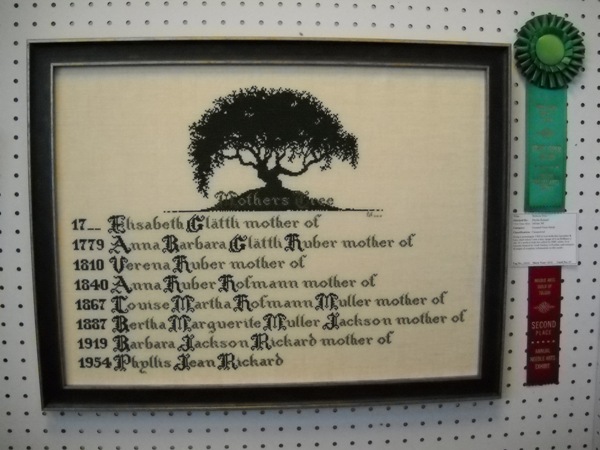 Mothers Tree
17__ Elisabeth Glättli mother of
1779 Anna Barbara Glättli Huber mother of
1810 Verena Huber mother of
1840 Anna Huber Hofmann mother of
1867 Louise Martha Hofmann Muller mother of
1887 Bertha Marguerite Muller Jackson mother of
1919 Barbara Jackson Rickard mother of
1954 Phyllis Jean Rickard
SECOND
PLACE
ANNUAL
NEEDLE ARTS
EXHIBIT